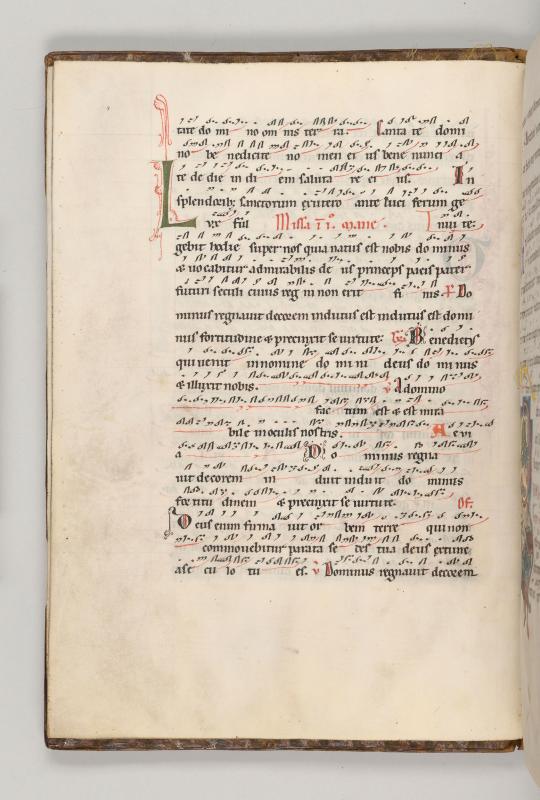 tate do mi no om nis ter ra. Canta te domi
no be nedicite no men ei us bene nunci a
te de die in di em saluta re ei us. In
splendorib; sanctorum ex utero ante luci ferum ge
L
Missa in mane.
gebit hodie super nos quia natus est nobis do minus
& uocabitur admirabilis de us princeps pacis pater
futuri seculi cuius reg ni non erit fi nis. Do
minus regnauit decorem indutus est indutus est domi
nus fortitudine & precinxit se uirtute. Benedictus
qui uenit in nomine do mi ni deus do mi nus
& illuxit nobis. A domino
fac tum est & est mira
bile in oculis nostris. A eui
a Do minus regna
uit decorem in duit indu it do minus
for titu dinem & precinxit se uirtute. Of.
D eus enim firma uit or bem terre qui non
commouebitur parata se des tua deus ex tunc
a se cu lo tu es. Dominus regnauit decorem